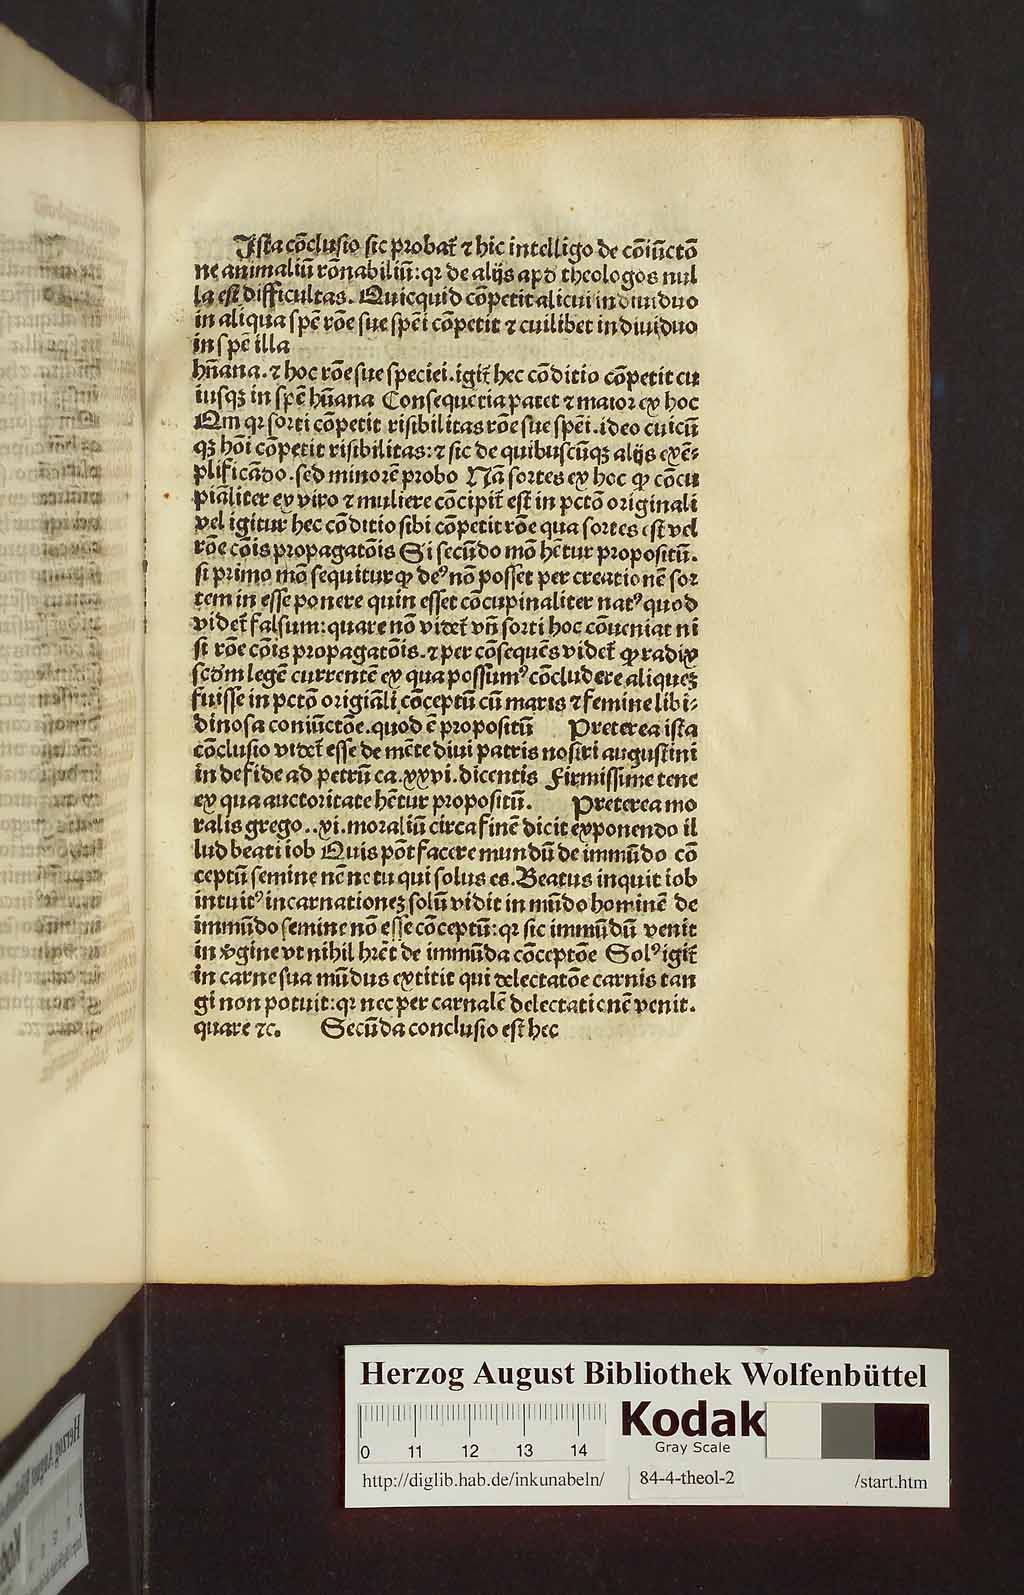 Ista cōclusio sic probat̄ ⁊ hic intelligo de cōiūctō
ne animaliū rōnabiliū: qꝛ de alijs apd theologos nul
la est difficultas. Quicquid cōpetit alicui indiuiduo
in aliqua spē rōe sue spēi cōpetit ⁊ cuilibet indiuiduo
in spē illa
hūana. ⁊ hoc rōe sue speciei. igit̄ hec cōditio cōpetit cu
iusqꝫ in spē hūana Consequētia patet ⁊ maior ex hoc
Qm qꝛ sorti cōpetit risibilitas rōe sue spēi. ideo cuicū
qꝫ hōi cōpetit risibilitas: ⁊ sic de quibuscūqꝫ alijs exē-
plificādo. sed minorē probo Nā sortes ex hoc ꝙ cōcu
pialiter ex viro ⁊ muliere cōcipit̄ est in pctō originali
vel igitur hec cōditio sibi cōpetit rōe qua sortes est vel
rōe cōis propagatōis Si secūdo mō hētur propositū.
si primo mō sequitur ꝙ deꝰ nō posset per creationē sor
tem in esse ponere quin esset cōcupinaliter natꝰ quod
videt̄ falsum: quare nō videt̄ vn̄ sorti hoc cōueniat ni
si rōe cōis propagatōis. ⁊ per cōsequēs videt̄ ꝙ radix
scdm legē currentē ex qua possumꝰ cōcludere aliqueꝫ
fuisse in pctō origiāli cōceptū cū maris ⁊ femine libi-
dinosa coniūctōe. quod ē propositū Preterea ista
cōclusio videt̄ esse de mēte diui patris nostri augustini
in de fide ad petrū ca. xxvi. dicentis Firmissime tene
ex qua auctoritate hētur propositū. Preterea mo
ralis grego.. xi. moraliū circa finē dicit exponendo il
lud beati iob Quis pōt facere mundū de immūdo cō
ceptū semine nēne tu qui solus es. Beatus inquit iob
intuitꝰ incarnationeꝫ solū vidit in mūdo hominē de
immūdo semine nō esse cōceptū: qꝛ sic immūdū venit
in v̄gine vt nihil hrēt de immūda cōceptōe Solꝰ igit̄
in carne sua mūdus extitit qui delectatōe carnis tan
gi non potuit: qꝛ nec per carnalē delectationē venit.
quare ⁊c. Secūda conclusio est hec
Herzog August Bibliothek Wolfenbüttel
0 11 12 13 14
Kodak
Gray Scale
http://diglib.hab.de/inkunabeln/ 84-4-theol-2 /start.htm